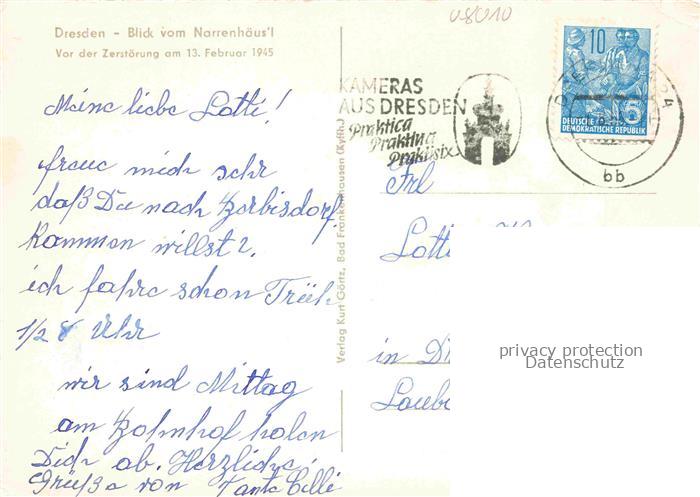 08010
Dresden - Blick vom Narrenhäus'l
Vor der Zerstörung am 13. Februar 1945
Meine liebe Lotti!
freue mich sehr
daß Du nach Herbisdorf
kommen willst?.
ich fahre schon Früh
1/2 8 Uhr
wir sind Mittag
am Bahnhof holen
Dich ab. Herzliche
Grüße von Tante Cilli
Verlag Kurt Görtz, Bad Frankenhausen (Kyffh.)
KAMERAS
AUS DRESDEN
Praktica
Praktina
Praktisix
10
5
DEUTSCHE
DEMOKRATISCHE REPUBLIK
bb
Frl
Lotti
in D
Laub
privacy protection
Datenschutz